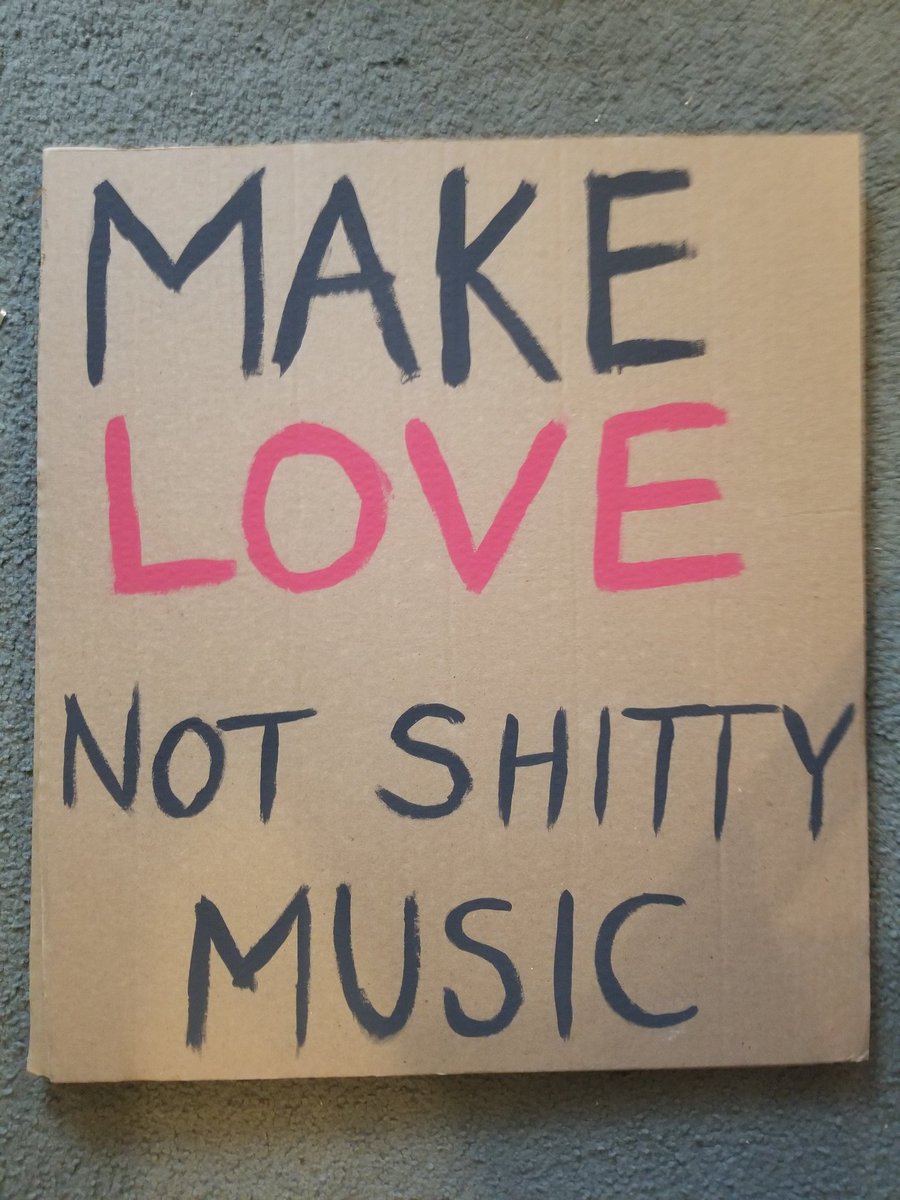 MAKE
LOVE
NOT SHITTY
MUSIC